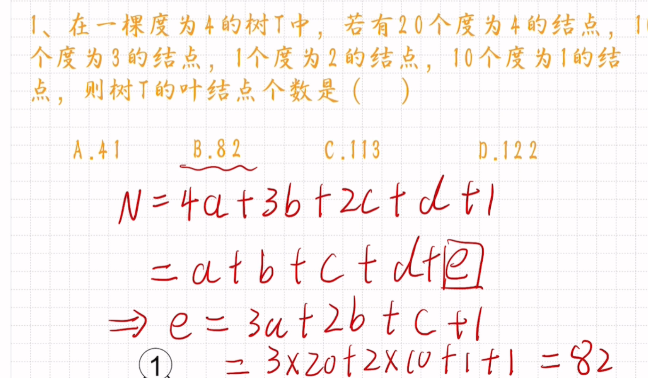 1、在一棵度为4的树T中，若有20个度为4的结点，1
个度为3的结点，1个度为2的结点，10个度为1的结
点，则树T的叶结点个数是（ ）
A.41 B.82 C.113 D.122
N=4a+3b+2c+d+1
=a+b+c+d+e
⇒ e=3a+2b+c+1
① =3×20+2×10+1+1=82